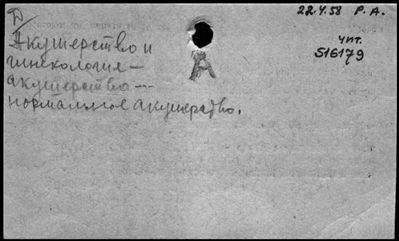 Д
22.4.58 Р. А.
Акушерство и
гинекология —
акушерство —
нормальное акушерство.
А
чит.
516179